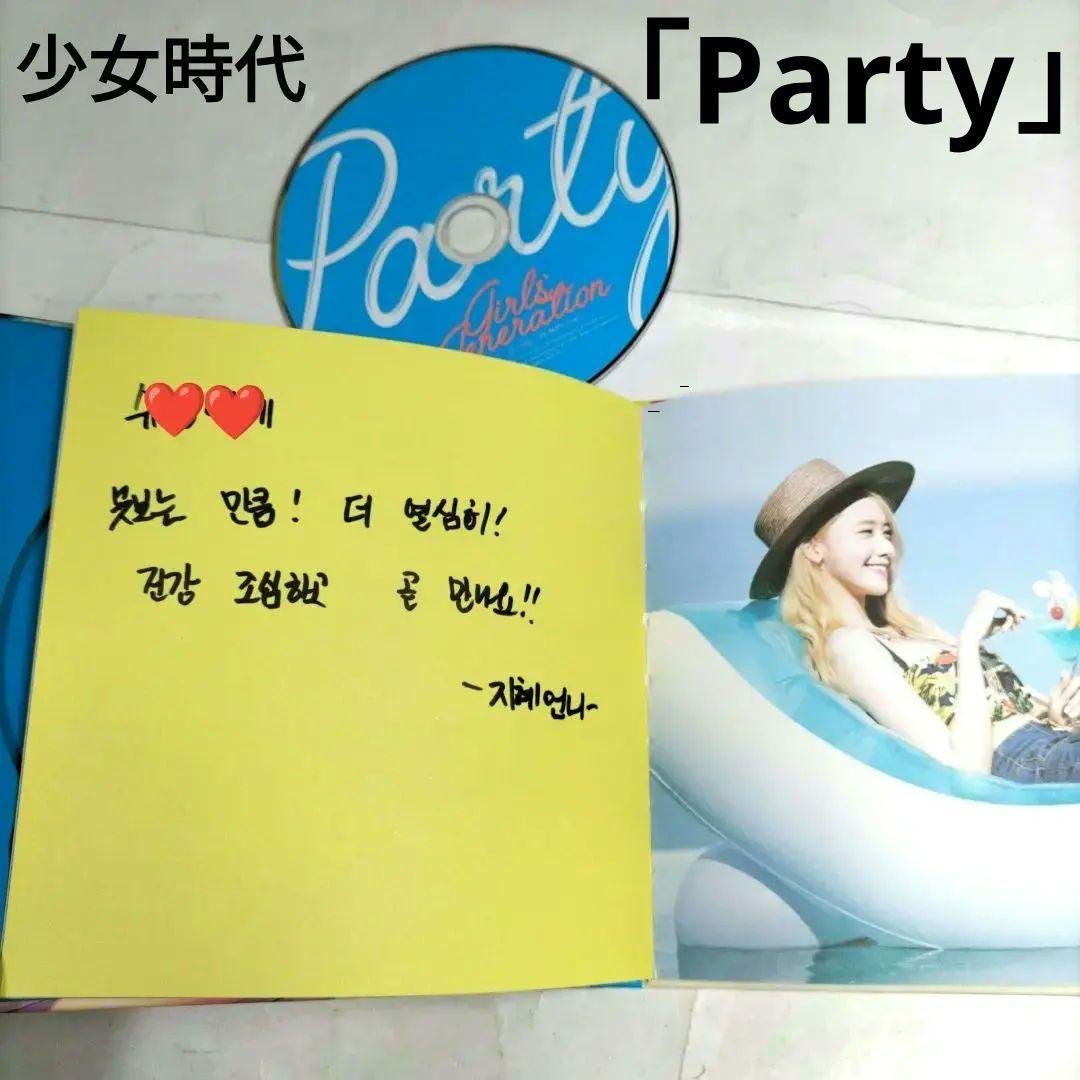 少女時代
「Party」
Party
Girls'
Generation
못보는 만큼! 더 열심히!
건강 조심하고 곧 만나요!!
-지혜언니-